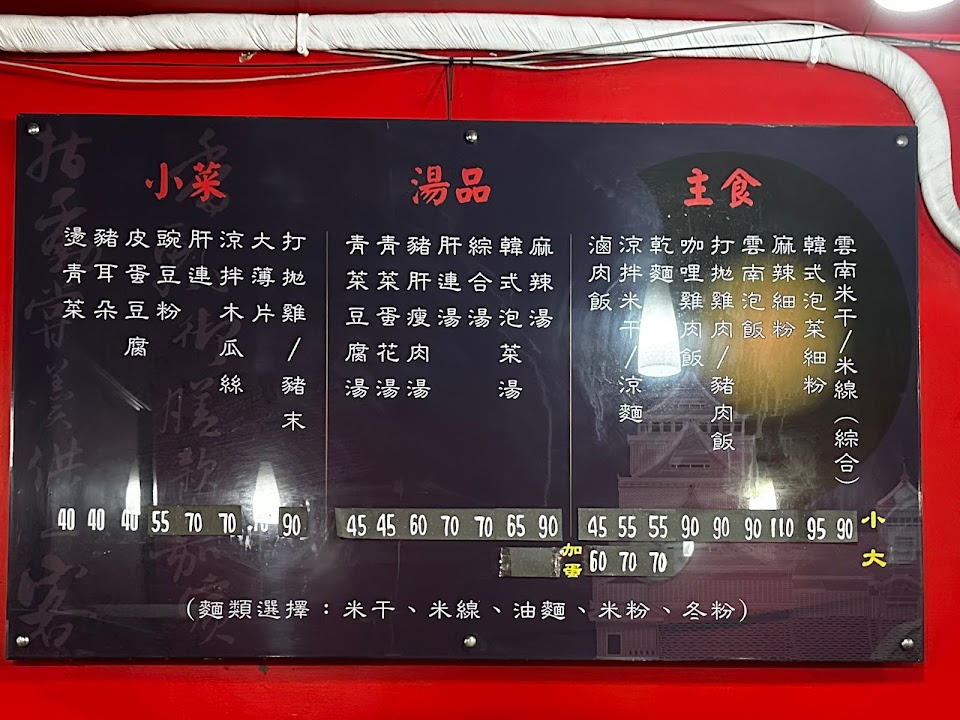 主食
雲南米干/米線(綜合)
韓式泡菜細粉
麻辣細粉
雲南泡飯
打拋雞肉/豬肉飯
咖哩雞肉飯
乾麵
涼拌米干/涼麵
滷肉飯
湯品
麻辣湯
韓式泡菜湯
綜合湯
肝連湯
豬肝瘦肉湯
青菜蛋花湯
青菜豆腐湯
小菜
打拋雞/豬末
大薄片
涼拌木瓜絲
肝連
豌豆粉
皮蛋豆腐
豬耳朵
燙青菜
40 40 40 55 70 70 90
45 45 60 70 70 65 90
45 55 55 90 90 90 110 95 90 小
加蛋
60 70 70 大
(麵類選擇：米干、米線、油麵、米粉、冬粉)